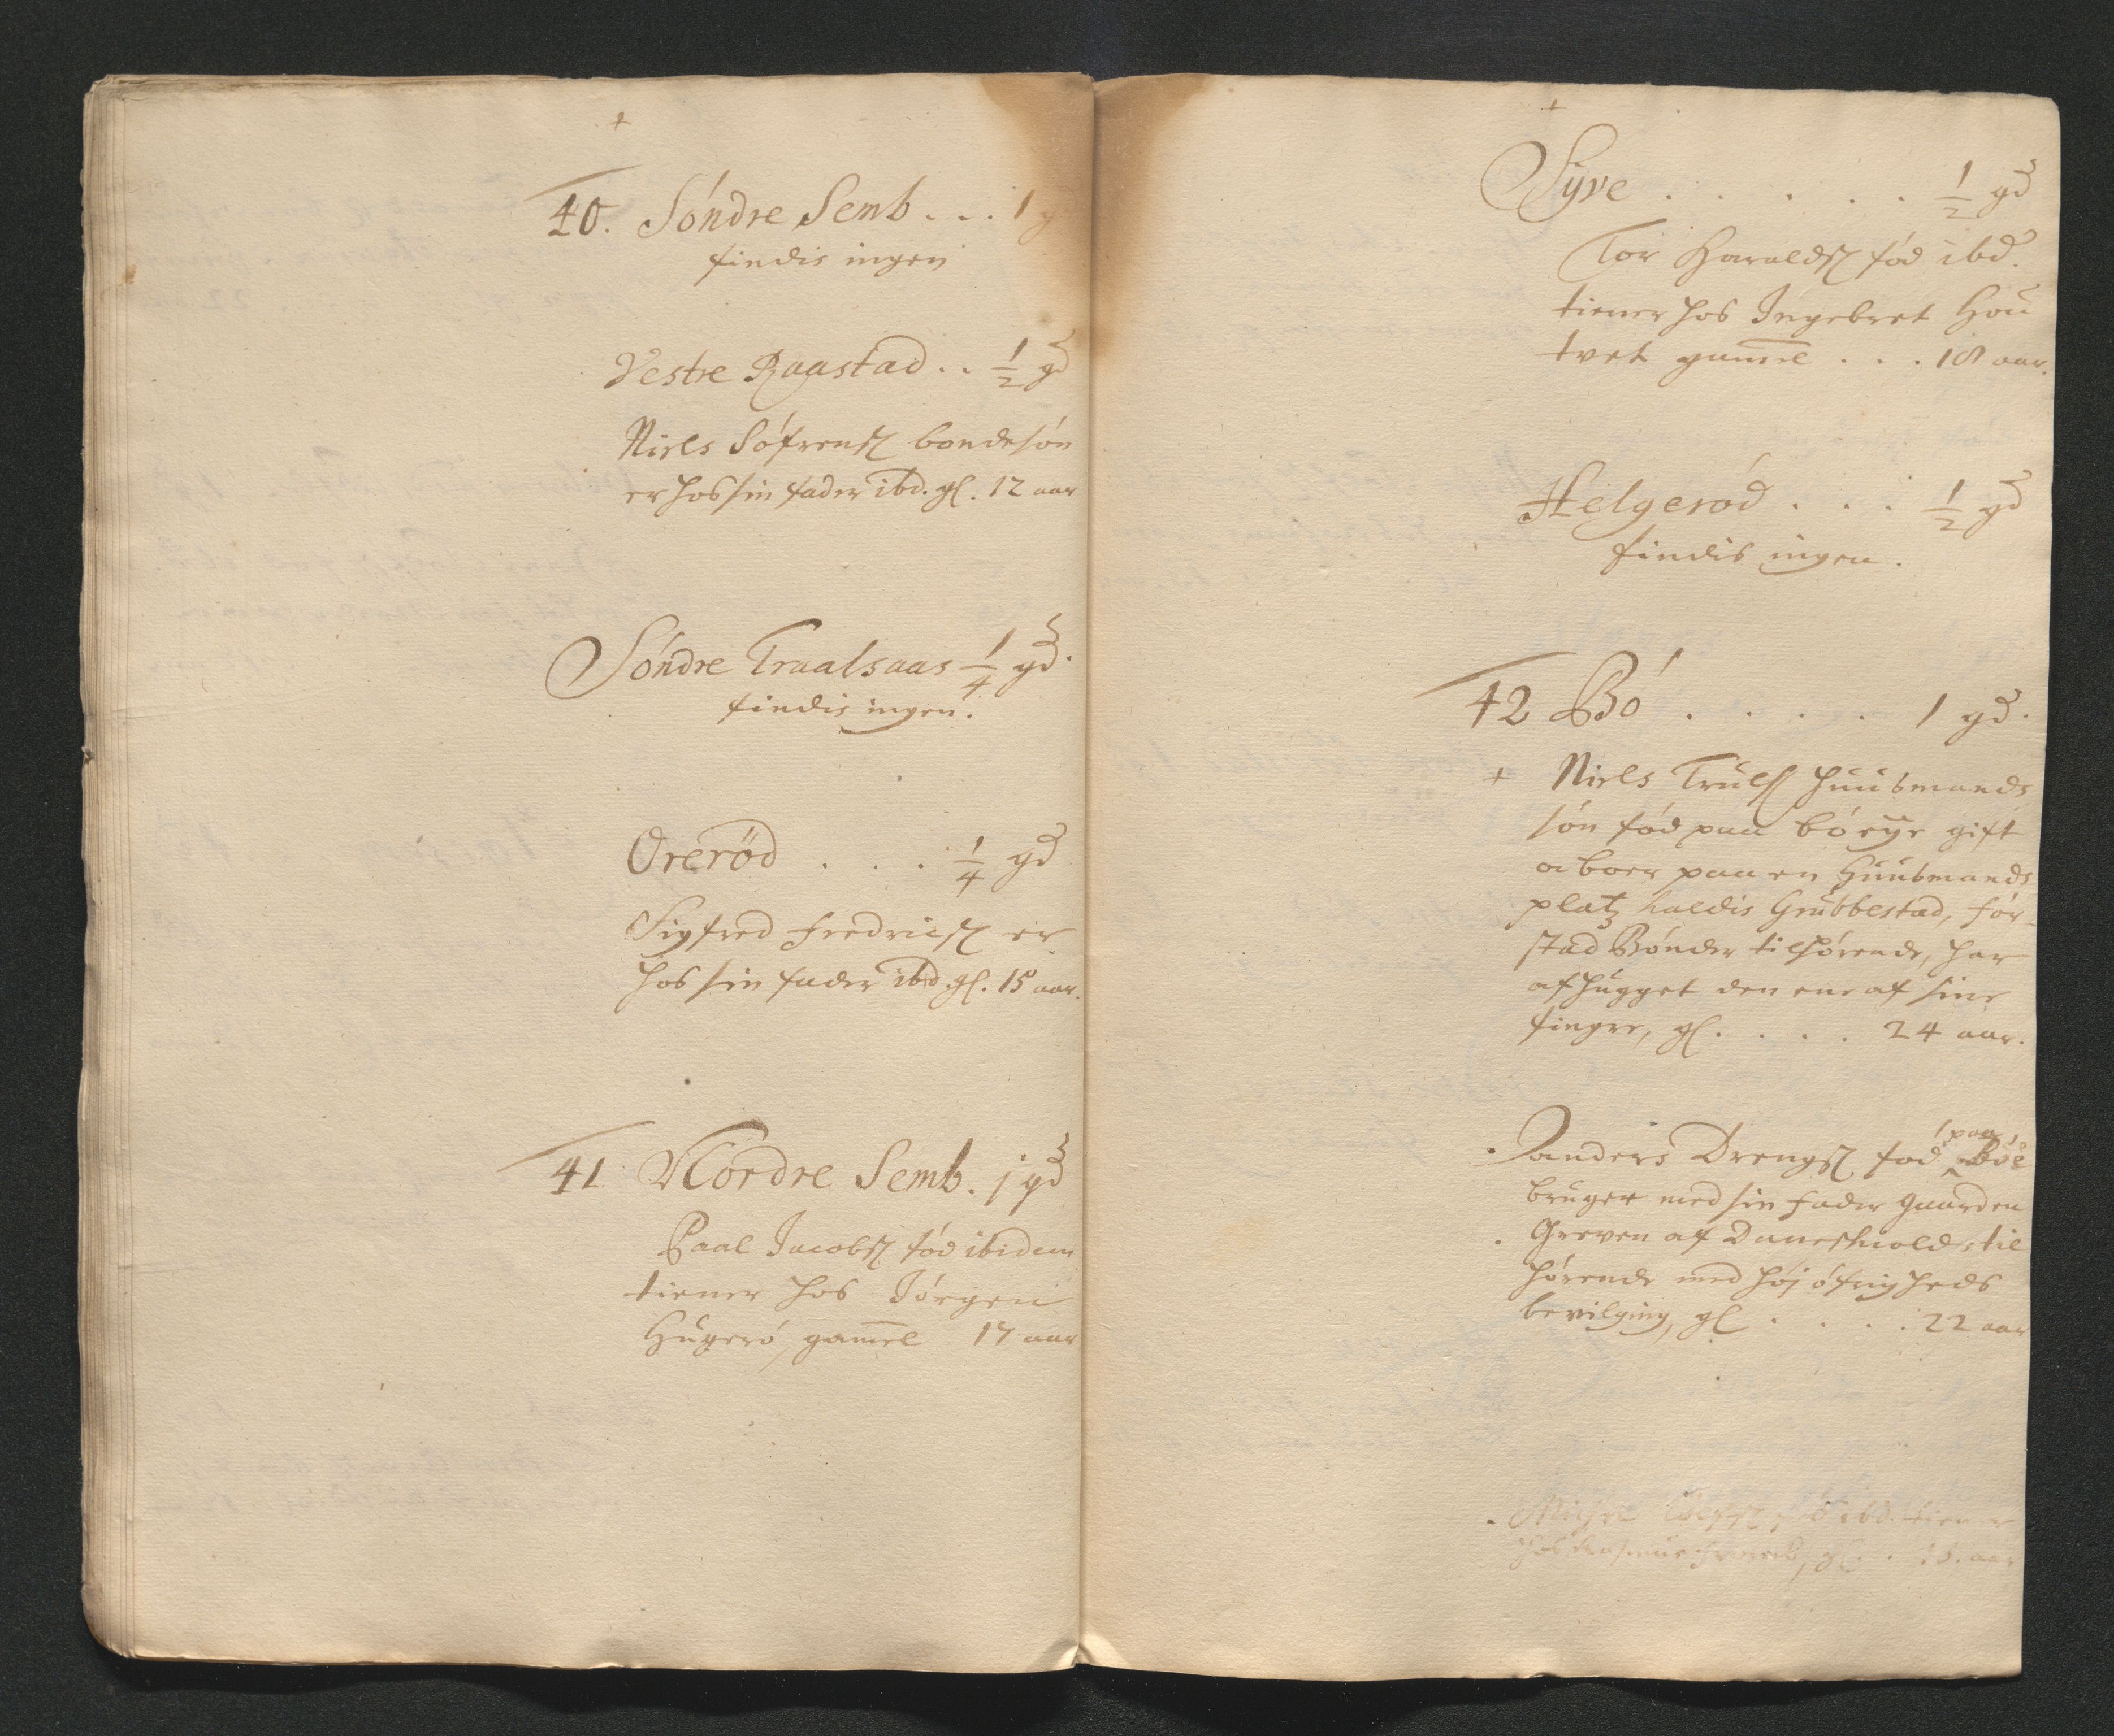 40. Söndre Semb . . . 1 g
findis ingen
Vestre Raastad . . 1/2 gd
Niels Söfrens bondesön
er hos sin fader ibd. gl. 12 aar
Söndre Traalsaas 1/4 gd.
findis ingen.
Oreröd . . . 1/4 gd
Sigfred Fredrics er
hos sin fader ibd gl. 15 aar.
41 Nordre Semb. j gd
Paal Jacobs föd ibidem
tiener hos Jörgen
Hugerö, gam̅el 17 aar
Syre . . . . . 1/2 gd
Tor Haralds föd ibd.
tiener hos Ingebret Hou
tvet gam̅el . . . 18 aar.
Helgeröd . . . 1/2 gd
findis ingen.
42 Bö . . . . 1 gd.
+ Niels Truls huusmands
sön föd paa bö eÿe gift
oc boer paa en Huusmands
platz kaldis Grubbestad, för-
stad Bönder tilhörende, har
afhugget den ene af sine
fingre, gl. . . . . 24 aar.
. Anders Drengs föd paa Böe
bruger med sin fader gaarden
. Greven af Daneskiolds til
hörende med höj öfrigheds
bevilging, gl . . . . 22 aar
. Michel föd ibd. tiener
hos Rasmus gl. . aar